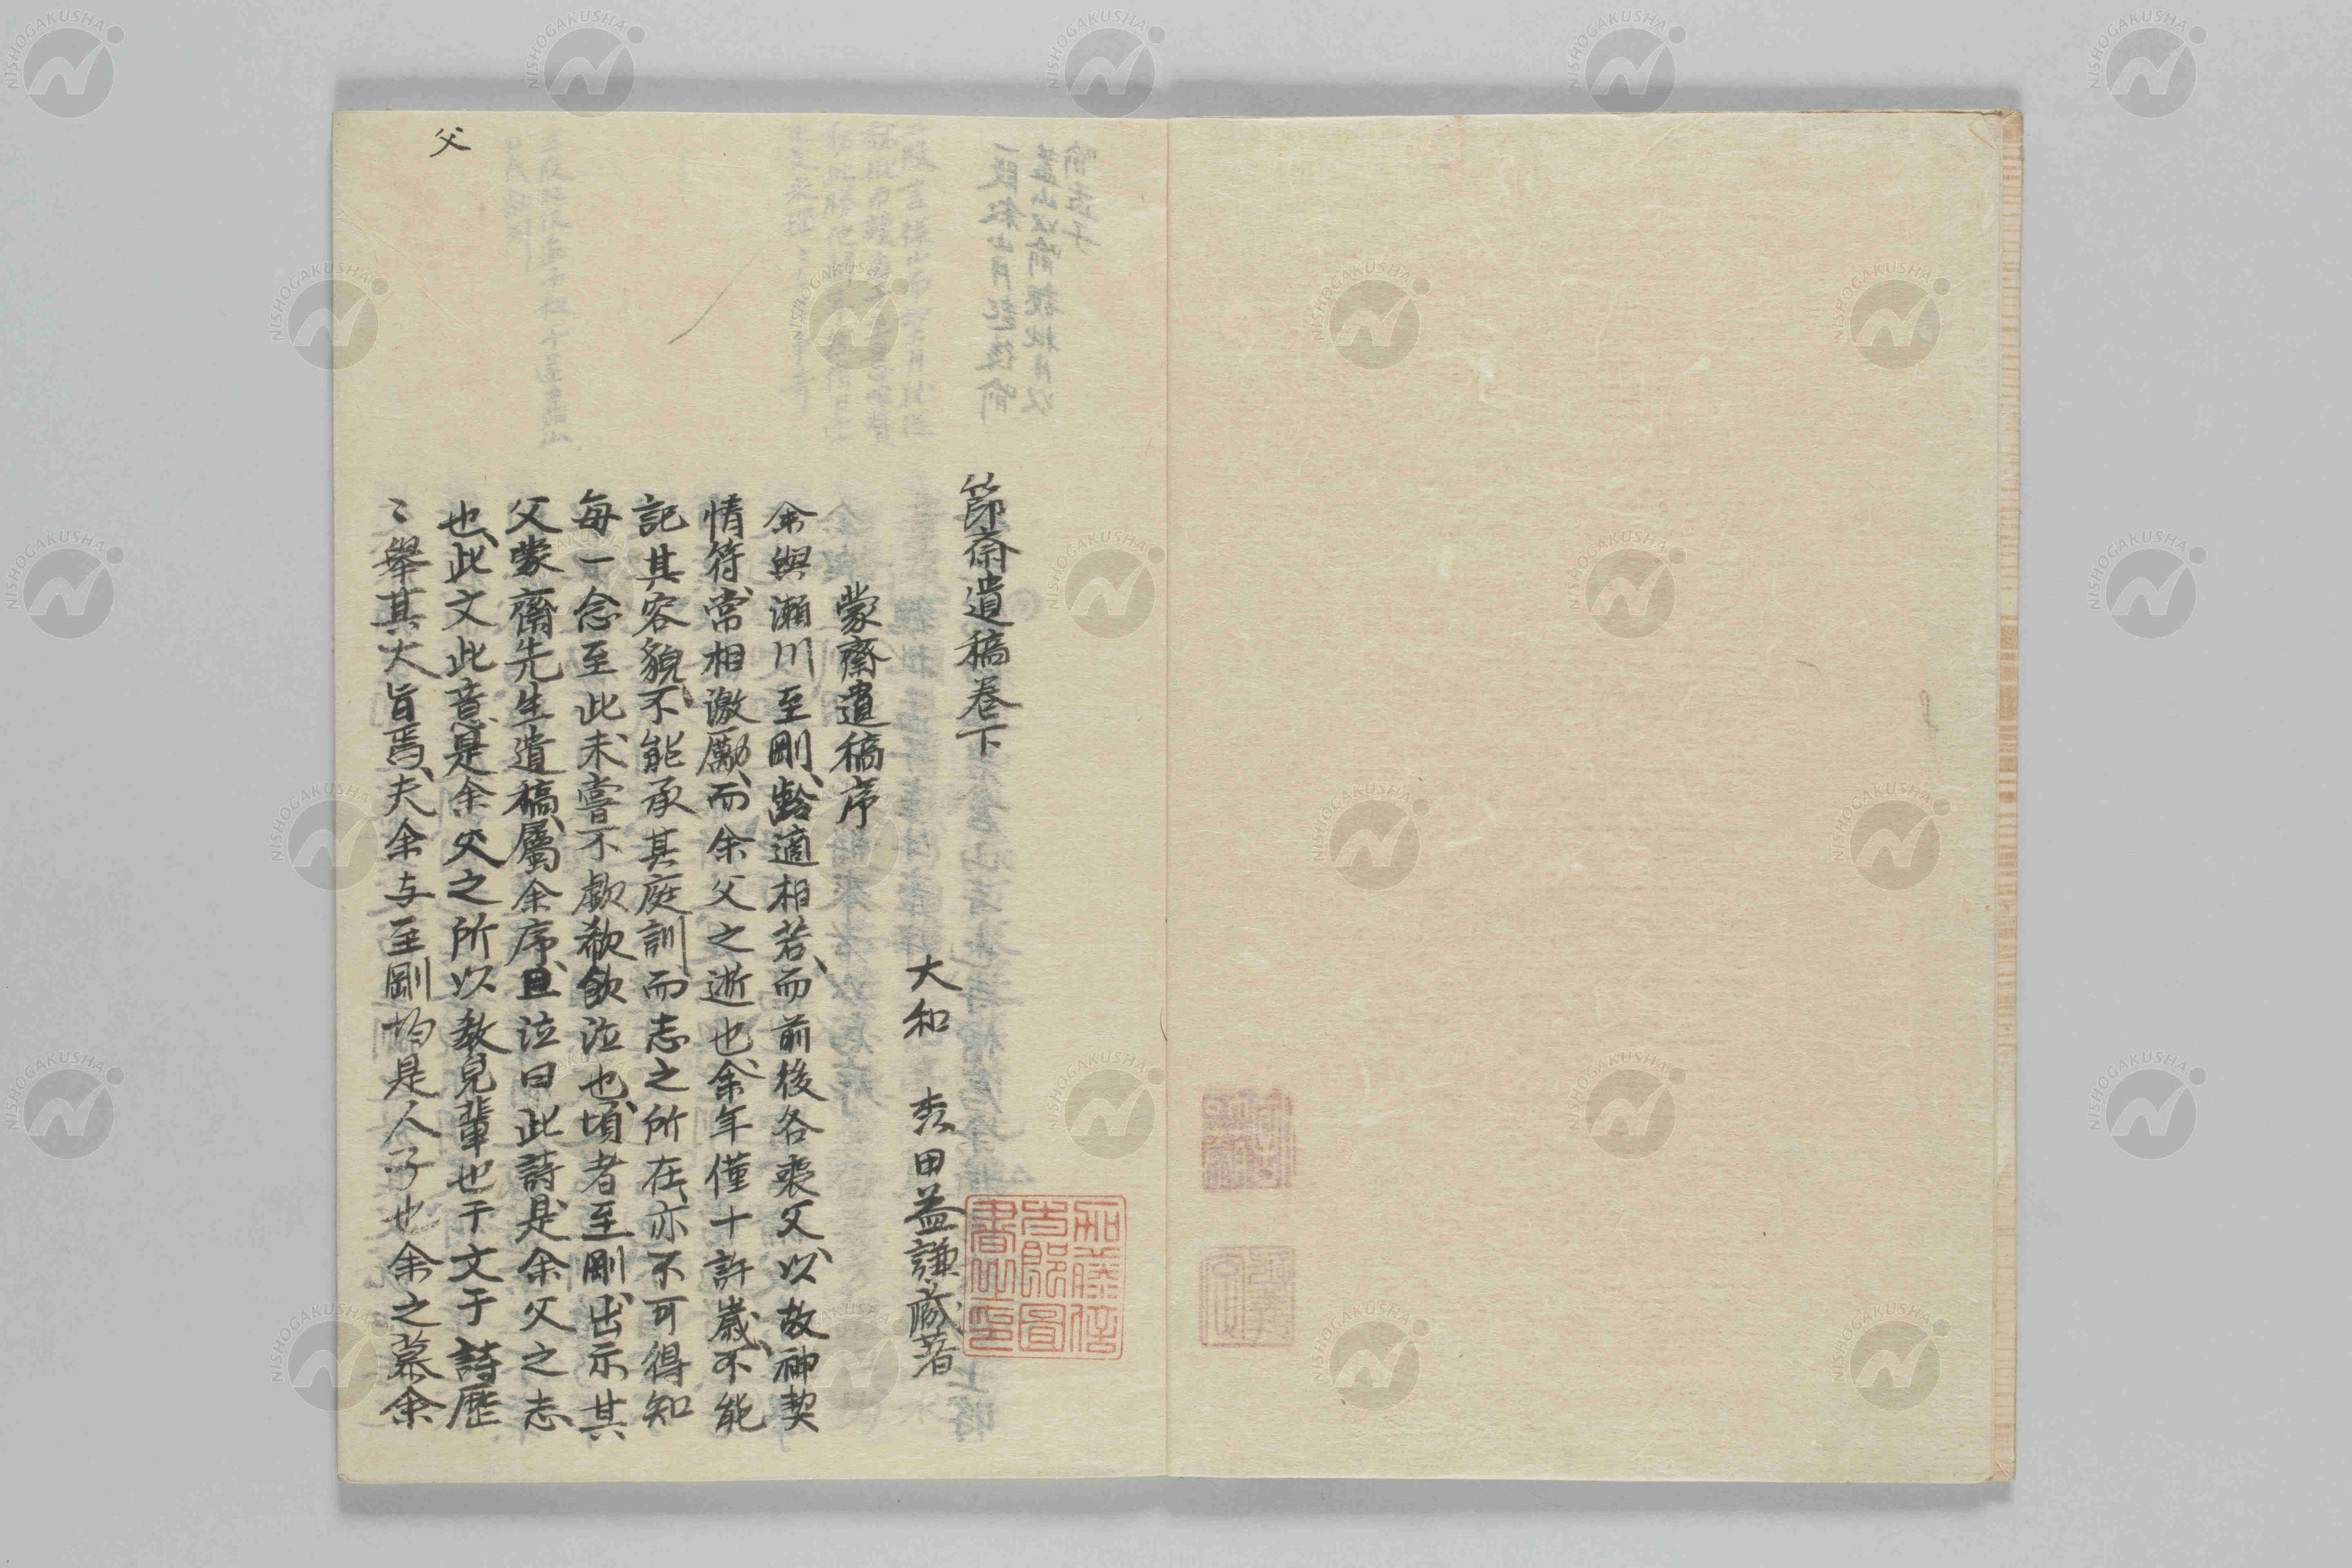 節斎遺稿卷下
蒙齋遺稿序
大和 森田益謙藏著
余與瀨川至剛、齡適相若、而前後各喪父、以故神契
情符、常相激勵、而余父之逝也、余年僅十許歲、不能
記其容貌、不能承其庭訓、而志之所在、亦不可得知
每一念至此、未嘗不歔欷飮泣也、頃者至剛、出示其
父蒙齋先生遺稿、屬余序、且泣曰此詩是余父之志
也、此文此意是余父之所以教兒輩也于文于詩歷
〻舉其大旨焉、夫余与至剛均是人子也余之慕余
父
加藤信
太郎圖
書之印
NISHOGAKUSHA